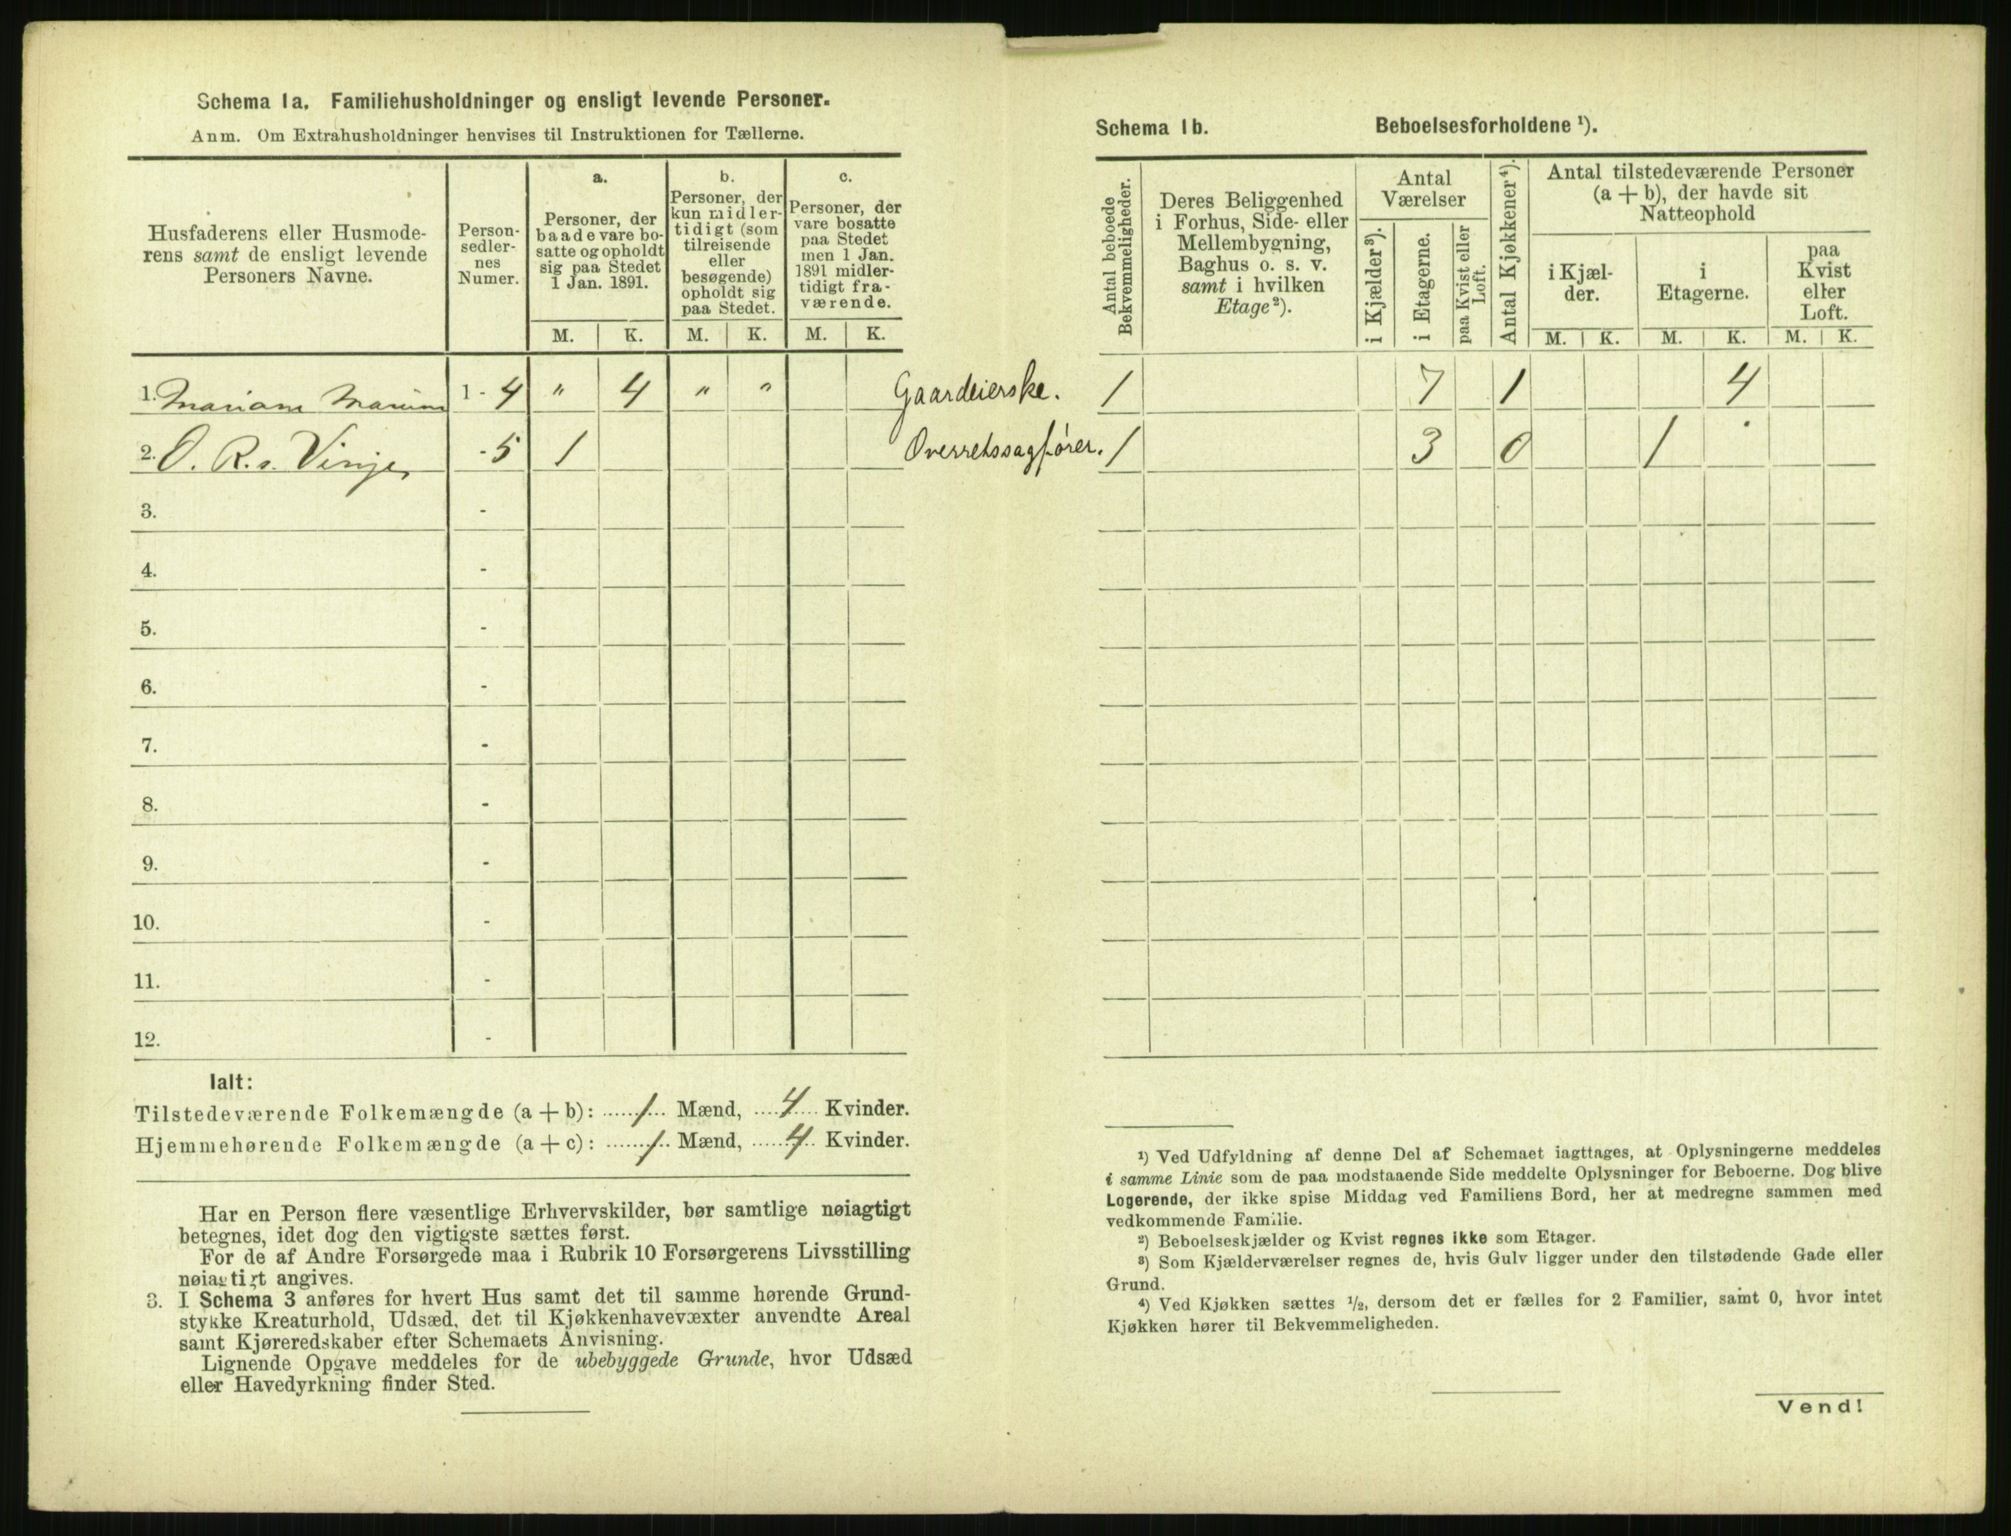 Schema 1a. Familiehusholdninger og ensligt levende Personer.
Anm. Om Extrahusholdninger henvises til Instruktionen for Tællerne.
Husfaderens eller Husmode-
rens samt de ensligt levende
Personers Navne.
Person-
sedler-
nes
Numer.
a.
Personer, der
baade vare bo-
satte og opholdt
sig paa Stedet
1 Jan. 1891.
b.
Personer, der
kun midler-
tidigt (som
tilreisende
eller
besøgende)
opholdt sig
paa Stedet.
c.
Personer, der
vare bosatte
paa Stedet
men 1 Jan.
1891 midler-
tidigt fra-
værende.
M. K. M. K. M. K.
1. Mariane 1 - 4 " 4 " " Gaardeierske.
2. O. R. s. Vinje - 5 1 Overretssagfører.
3. -
4. -
5. -
6. -
7. -
8. -
9. -
10. -
11. -
12. -
Ialt:
Tilstedeværende Folkemængde (a + b): ...... 1 ... Mænd, .... 4 .... Kvinder.
Hjemmehørende Folkemængde (a + c): ....... 1 .. Mænd, ...... 4 .. Kvinder.
Har en Person flere væsentlige Erhvervskilder, bør samtlige nøiagtigt
betegnes, idet dog den vigtigste sættes først.
For de af Andre Forsørgede maa i Rubrik 10 Forsørgerens Livsstilling
nøiagtigt angives.
3. I Schema 3 anføres for hvert Hus samt det til samme hørende Grund-
stykke Kreaturhold, Udsæd, det til Kjøkkenhavevæxter anvendte Areal
samt Kjøreredskaber efter Schemaets Anvisning.
Lignende Opgave meddeles for de ubebyggede Grunde, hvor Udsæd
eller Havedyrkning finder Sted.
Schema 1b. Beboelsesforholdene ¹).
Antal beboede
Bekvemmeligheder.
Deres Beliggenhed
i Forhus, Side- eller
Mellembygning,
Baghus o. s. v.
samt i hvilken
Etage ²).
Antal
Værelser
i Kjælder ³).
i Etagerne.
paa Kvist eller
Loft.
Antal Kjøkkener ⁴).
Antal tilstedeværende Personer
(a + b), der havde sit
Natteophold
i Kjæl-
der.
i
Etagerne.
paa
Kvist
eller
Loft.
M. K. M. K. M. K.
1 7 1 4
1 3 0 1
¹) Ved Udfyldning af denne Del af Schemaet iagttages, at Oplysningerne meddeles
i samme Linie som de paa modstaaende Side meddelte Oplysninger for Beboerne. Dog blive
Logerende, der ikke spise Middag ved Familiens Bord, her at medregne sammen med
vedkommende Familie.
²) Beboelseskjælder og Kvist regnes ikke som Etager.
³) Som Kjælderværelser regnes de, hvis Gulv ligger under den tilstødende Gade eller
Grund.
⁴) Ved Kjøkken sættes ½, dersom det er fælles for 2 Familier, samt 0, hvor intet
Kjøkken hører til Bekvemmeligheden.
Vend!